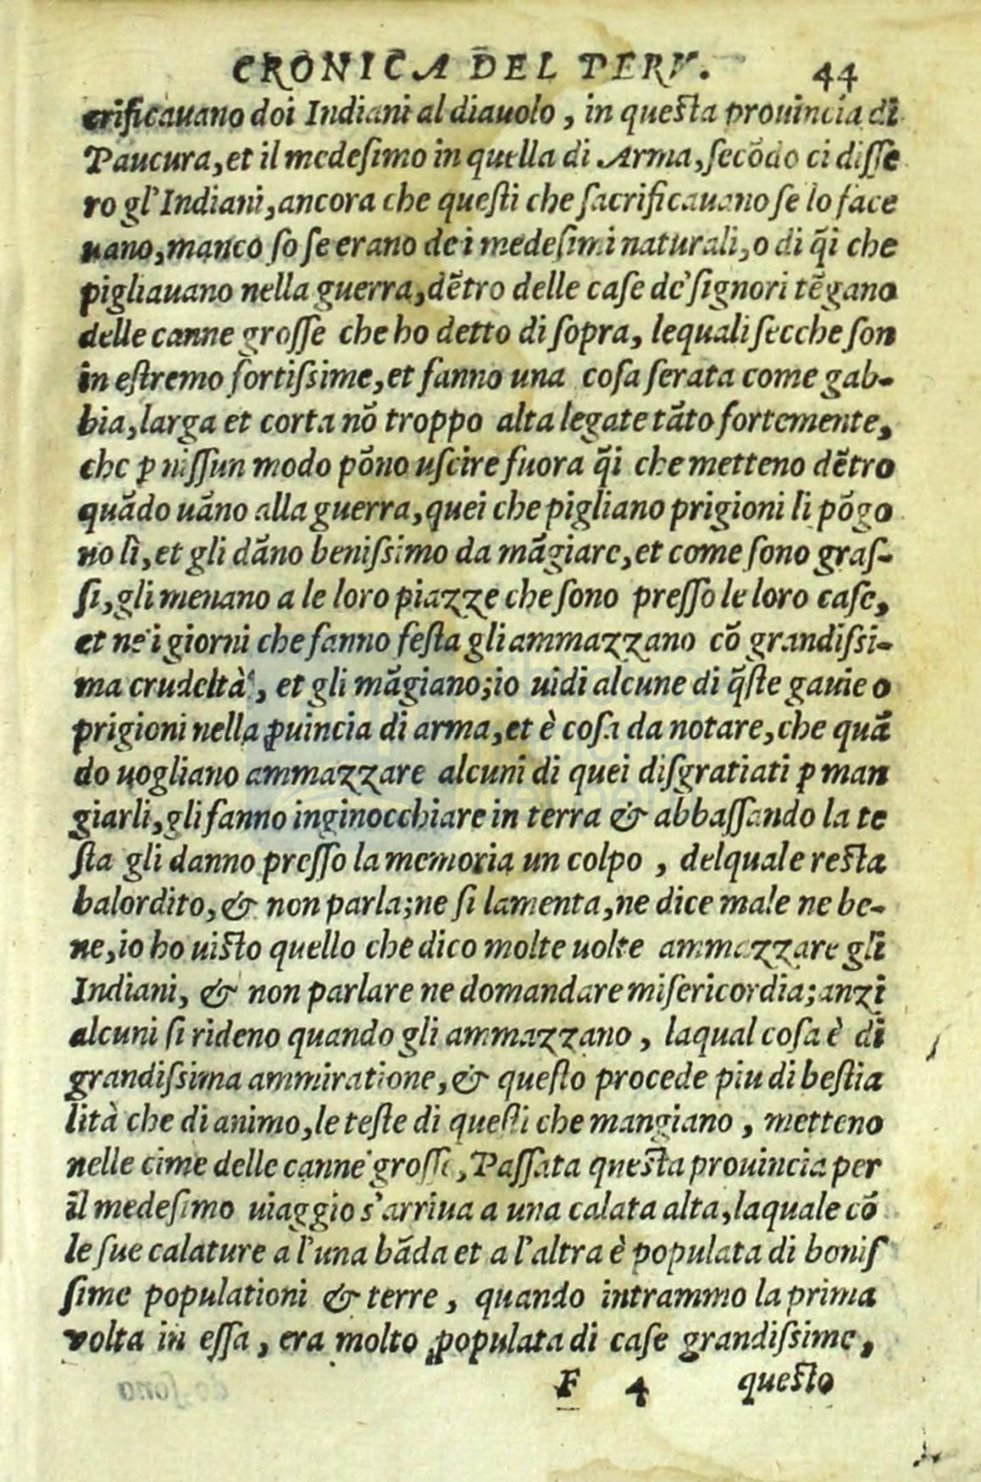 CRONICA DEL PERV. 44
crificauano doi Indiani al diauolo, in questa prouincia di
Paucura, et il medesimo in quella di Arma, secōdo ci disse
ro gl'Indiani, ancora che questi che sacrificauano se lo face
uano, manco so se erano dei medesimi naturali, o di q̃i che
pigliauano nella guerra, dētro delle case de' signori tēgano
delle canne grosse che ho detto di sopra, lequali secche son
in estremo fortissime, et fanno una cosa serata come gab-
bia, larga et corta nō troppo alta legate tāto fortemente,
che ꝑ nissun modo pōno uscire fuora q̃i che metteno dētro
quādo uāno alla guerra, quei che pigliano prigioni li pōgo
no lì, et gli dāno benissimo da māgiare, et come sono gras-
si, gli menano a le loro piazze che sono presso le loro case,
et ne' i giorni che fanno festa gli ammazzano cō grandissi-
ma crudeltà, et gli māgiano; io uidi alcune di q̃ste gauie o
prigioni nella ꝓuincia di arma, et è cosa da notare, che quā
do uogliano ammazzare alcuni di quei disgratiati ꝑ man
giarli, gli fanno inginocchiare in terra & abbassando la te
sta gli danno presso la memoria un colpo, delquale resta
balordito, & non parla; ne si lamenta, ne dice male ne be-
ne, io ho uisto quello che dico molte uolte ammazzare gli
Indiani, & non parlare ne domandare misericordia; anzi
alcuni si rideno quando gli ammazzano, laqual cosa è di
grandissima ammiratione, & questo procede piu di bestia
lità che di animo, le teste di questi che mangiano, metteno
nelle cime delle canne grosse, Passata questa prouincia per
il medesimo uiaggio s'arriua a una calata alta, laquale cō
le sue calature a l'una bāda et a l'altra è populata di bonis
sime populationi & terre, quando intrammo la prima
volta in essa, era molto populata di case grandissime,
F 4 questo